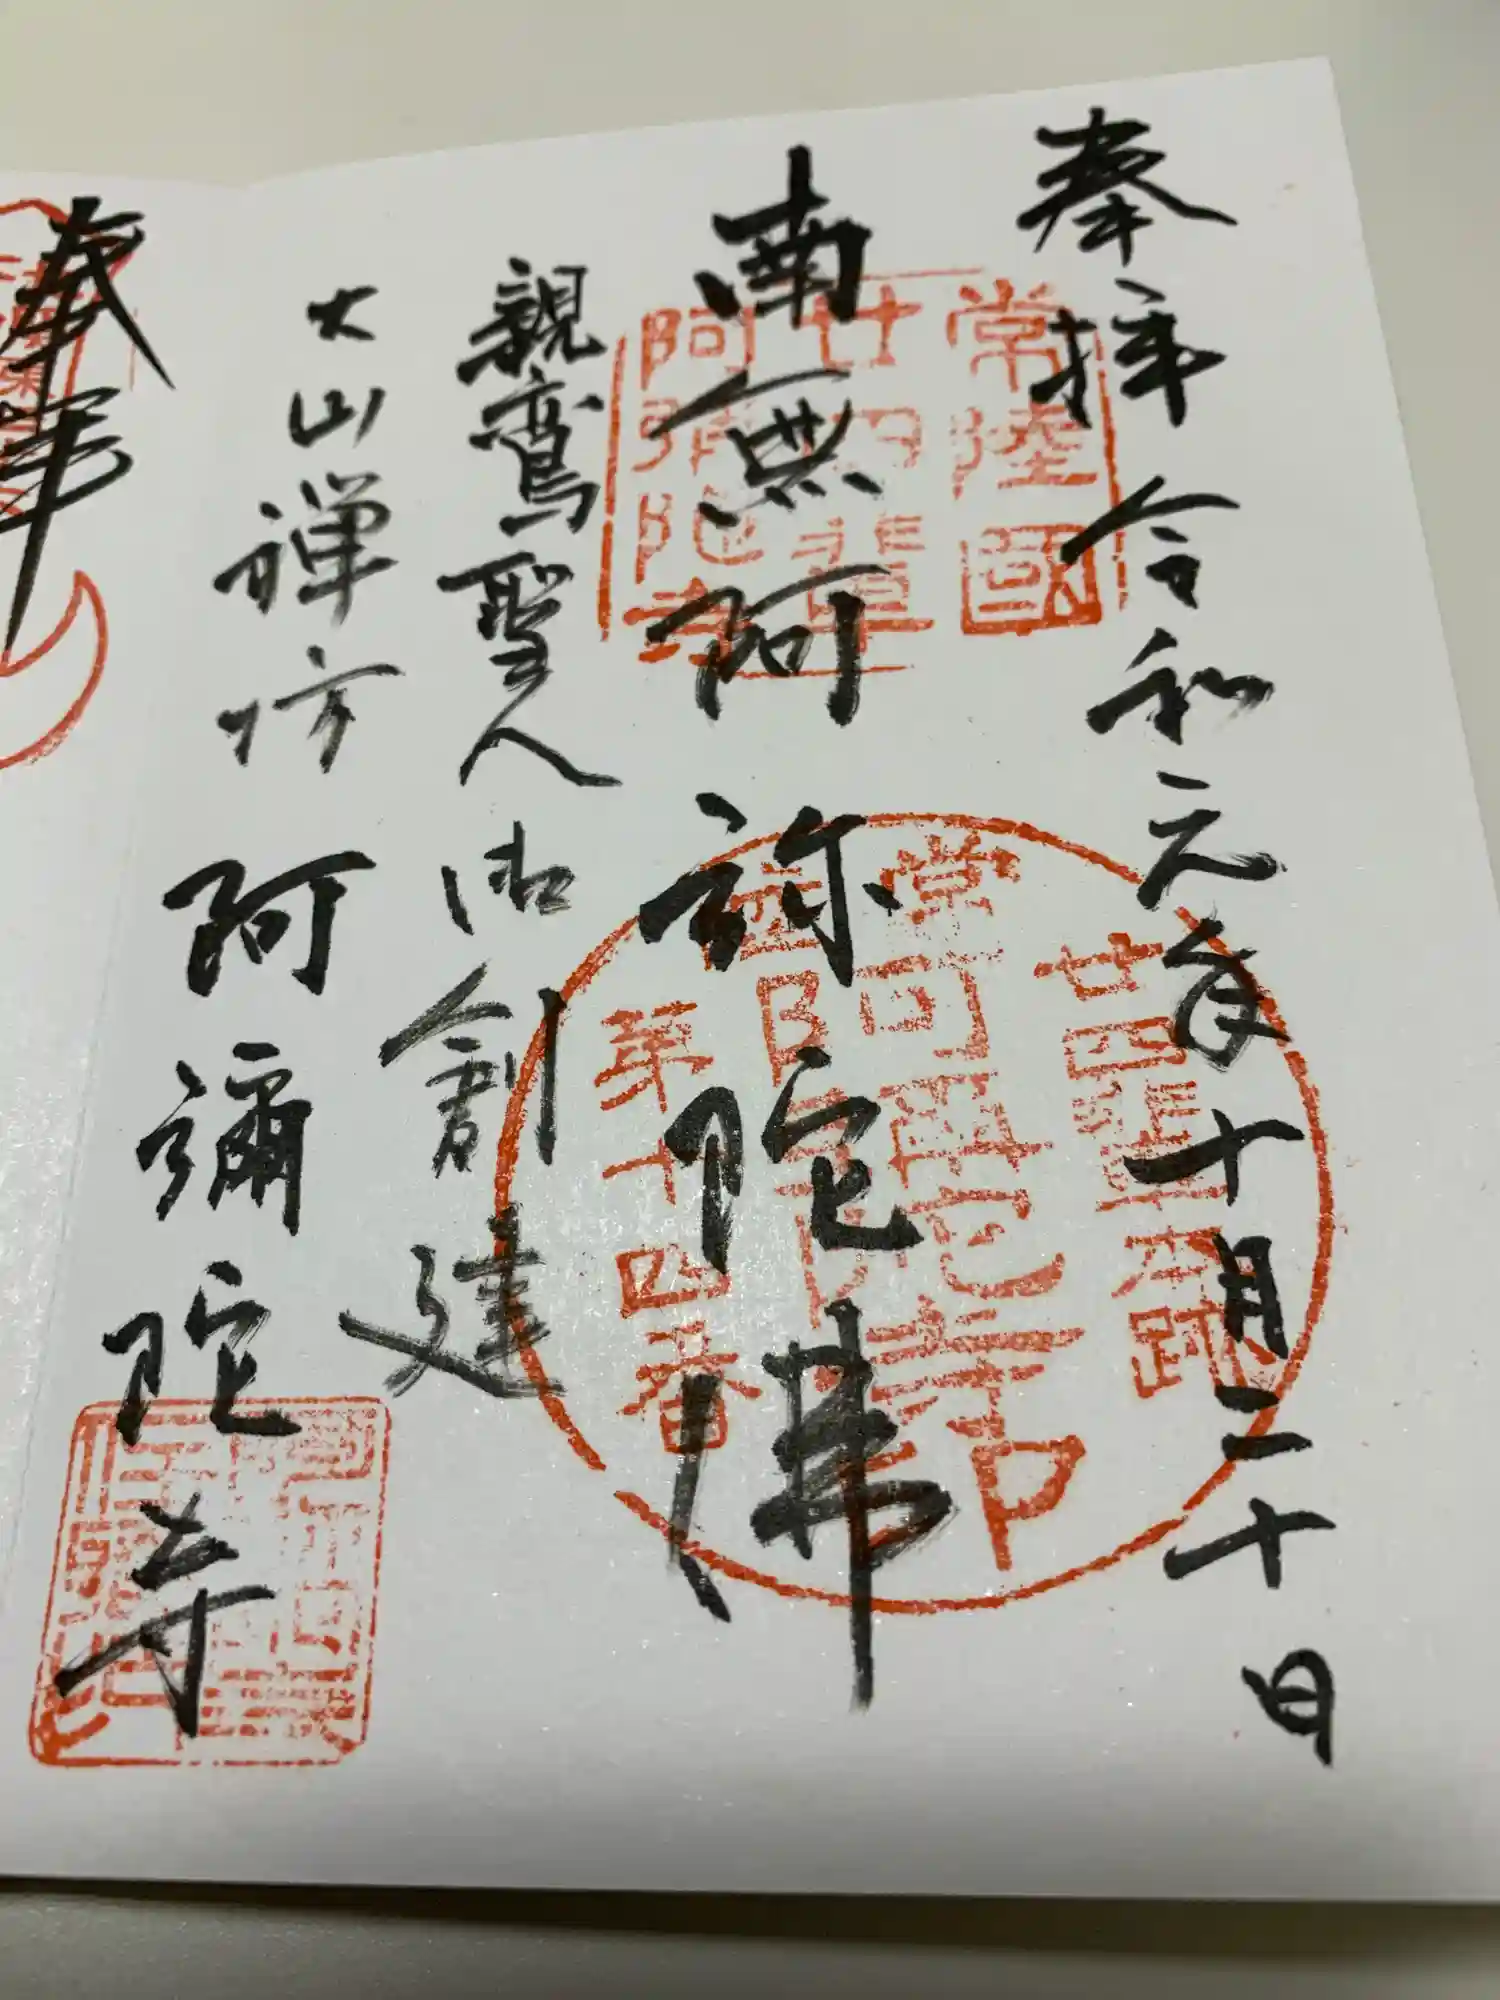 奉拝 令和元年十月二十日
南無阿弥陀佛
親鸞聖人御創建
大山禅坊 阿彌陀寺
常陸國
廿四輩
阿弥陀寺
廿四輩旧跡
常
阿弥陀寺
第十四番
奉拝